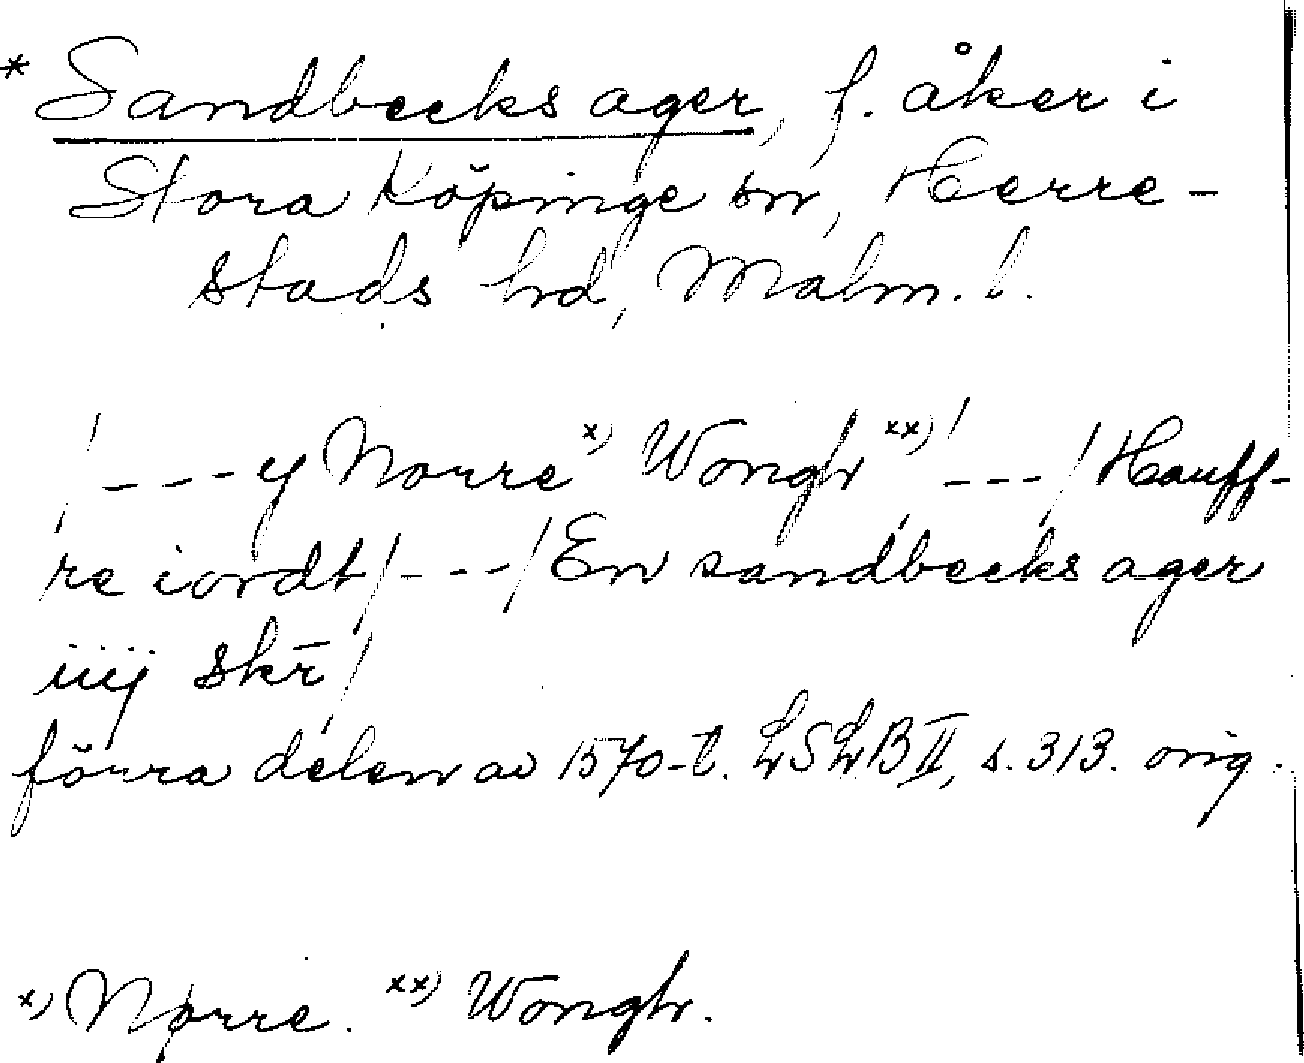 * Sandbecks ager, f. åker i
Stora Köpinge sn, Herre-
stads hd, Malm. l.
/---y Norre x) Wongh xx) /---/ Hauff-
re iordt/---/ En sandbecks ager
iiij skr̄/
förra delen av 1570-t. LSLB II, s. 313. orig.
x) Nørre. xx) Wongh.